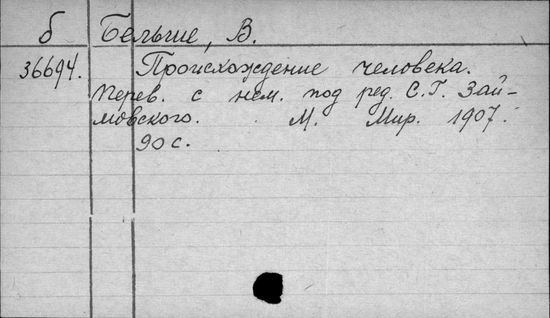 б Бельше, В.
36694. Происхождение человека.
Перев. с нем. под ред. С. Г. Зай-
мовского. М. Мир. 1907.
90 с.